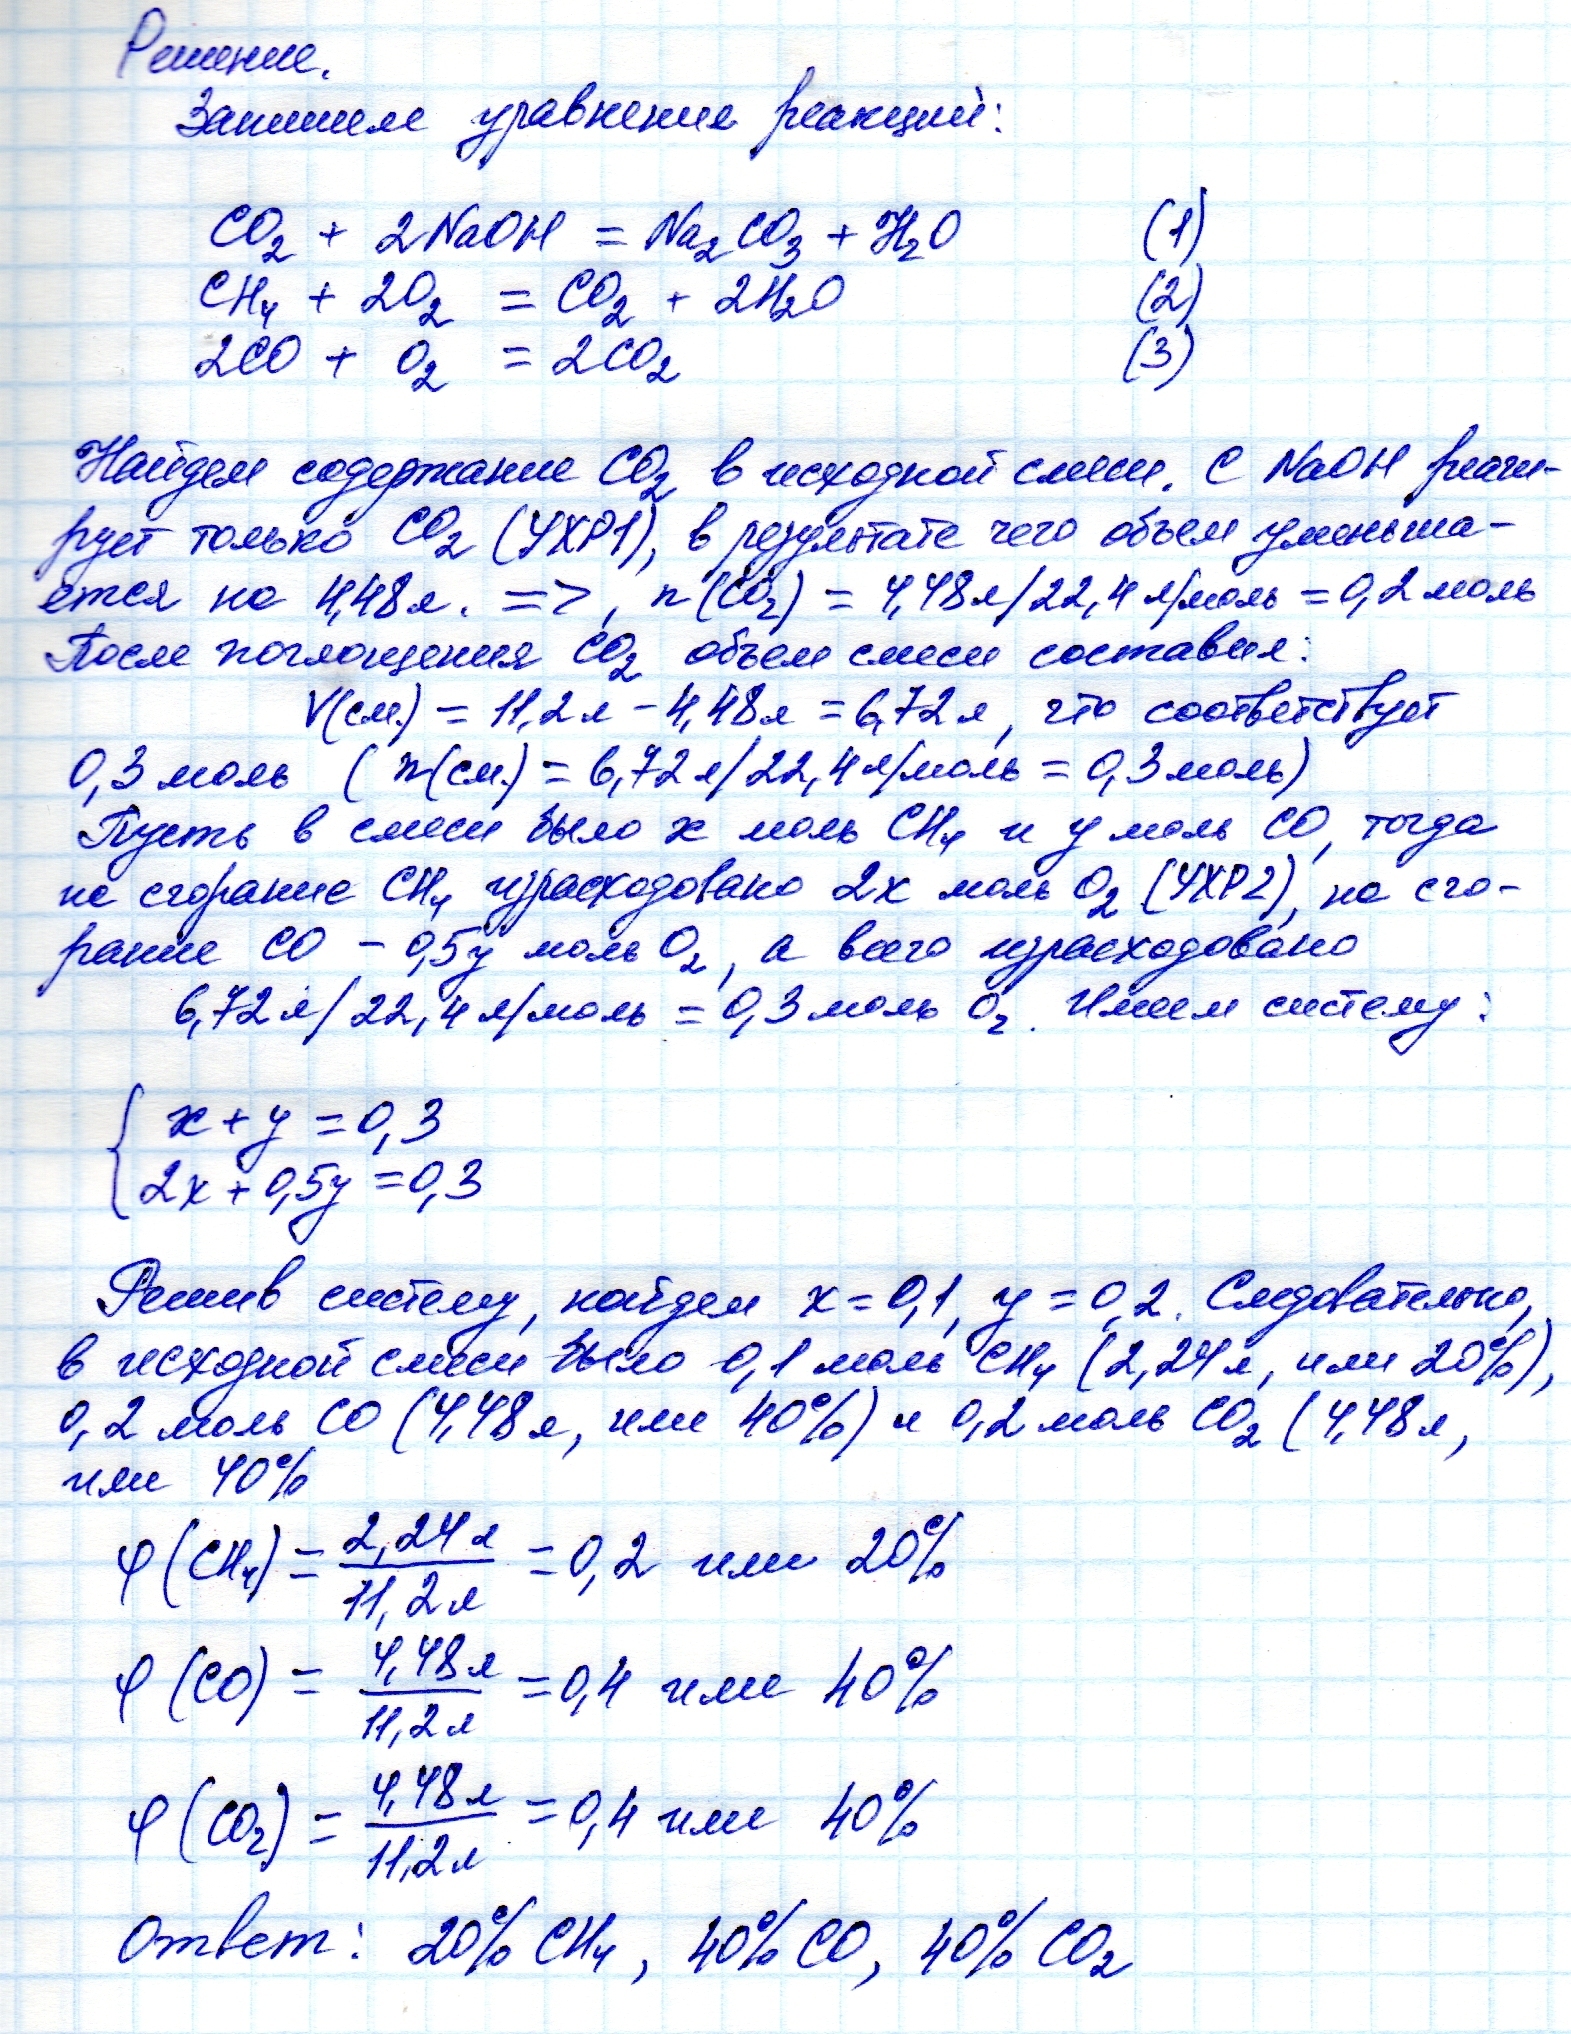 Решение.
Запишем уравнения реакций:
CO₂ + 2NaOH = Na₂CO₃ + H₂O (1)
CH₄ + 2O₂ = CO₂ + 2H₂O (2)
2CO + O₂ = 2CO₂ (3)
Найдем содержание CO₂ в исходной смеси. С NaOH реаги-
рует только CO₂ (УХР1), в результате чего объем уменьша-
ется на 4,48л. =>, n(CO₂) = 4,48л/22,4л/моль = 0,2моль
После поглощения CO₂ объем смеси составил:
V(см.) = 11,2л - 4,48л = 6,72л, что соответствует
0,3 моль (n(см.) = 6,72л/22,4л/моль = 0,3моль)
Пусть в смеси было x моль CH₄ и y моль CO, тогда
на сгорание CH₄ израсходовано 2x моль O₂ (УХР2), на сго-
рание CO - 0,5y моль O₂, а всего израсходовано
6,72л/22,4л/моль = 0,3моль O₂. Имеем систему:
{ x + y = 0,3
2x + 0,5y = 0,3
Решив систему, найдем x = 0,1, y = 0,2. Следовательно,
в исходной смеси было 0,1 моль CH₄ (2,24л, или 20%),
0,2 моль CO (4,48л, или 40%) и 0,2 моль CO₂ (4,48л,
или 40%
φ(CH₄) = 2,24л/11,2л = 0,2 или 20%
φ(CO) = 4,48л/11,2л = 0,4 или 40%
φ(CO₂) = 4,48л/11,2л = 0,4 или 40%
Ответ: 20% CH₄, 40% CO, 40% CO₂